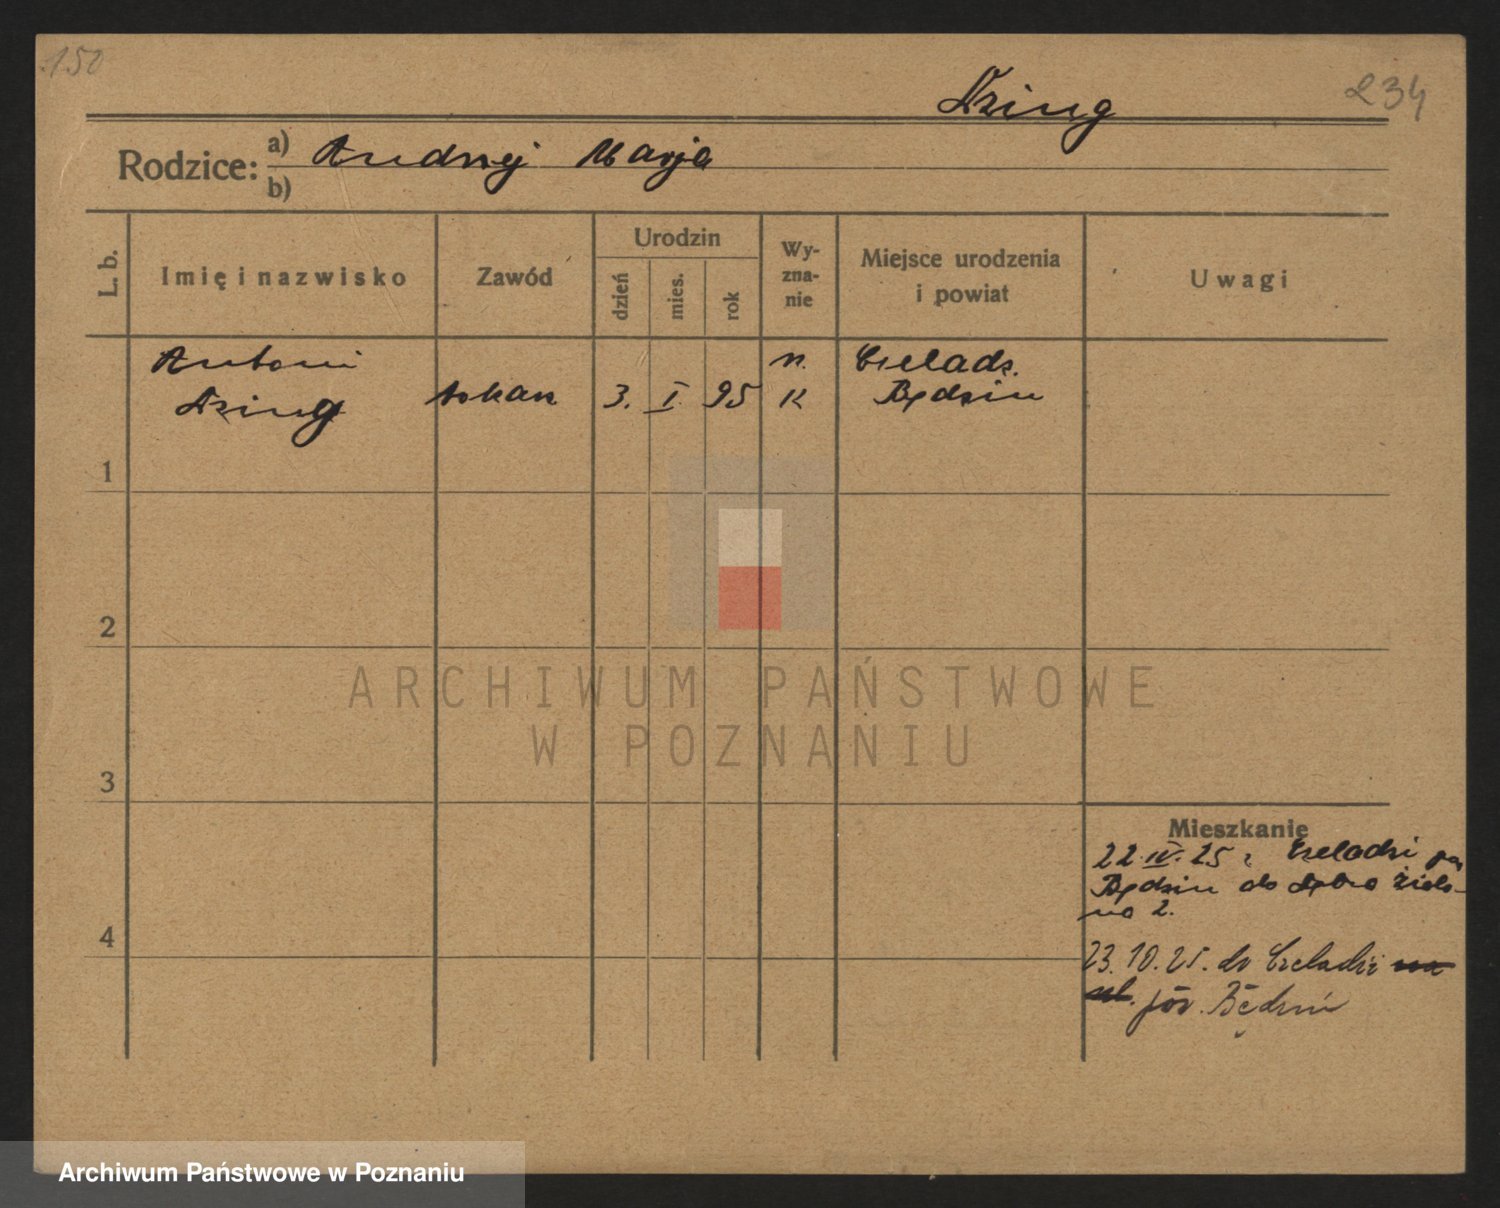 150
Dzing
234
Rodzice: a) Andrzej Marja
b)
L. b.
Imię i nazwisko
Zawód
Urodzin
dzień
mies.
rok
Wy-
zna-
nie
Miejsce urodzenia
i powiat
Uwagi
Antoni
Dzing
tokarz
3. I. 95
n.
K
Czeladź.
Będzin
1
2
3
4
ARCHIWUM PAŃSTWOWE
W POZNANIU
Mieszkanie
22.IV.25 z Czeladzi
Będzin do
no 2.
23.10.25. do Czeladzi
pow. Będzin
Archiwum Państwowe w Poznaniu